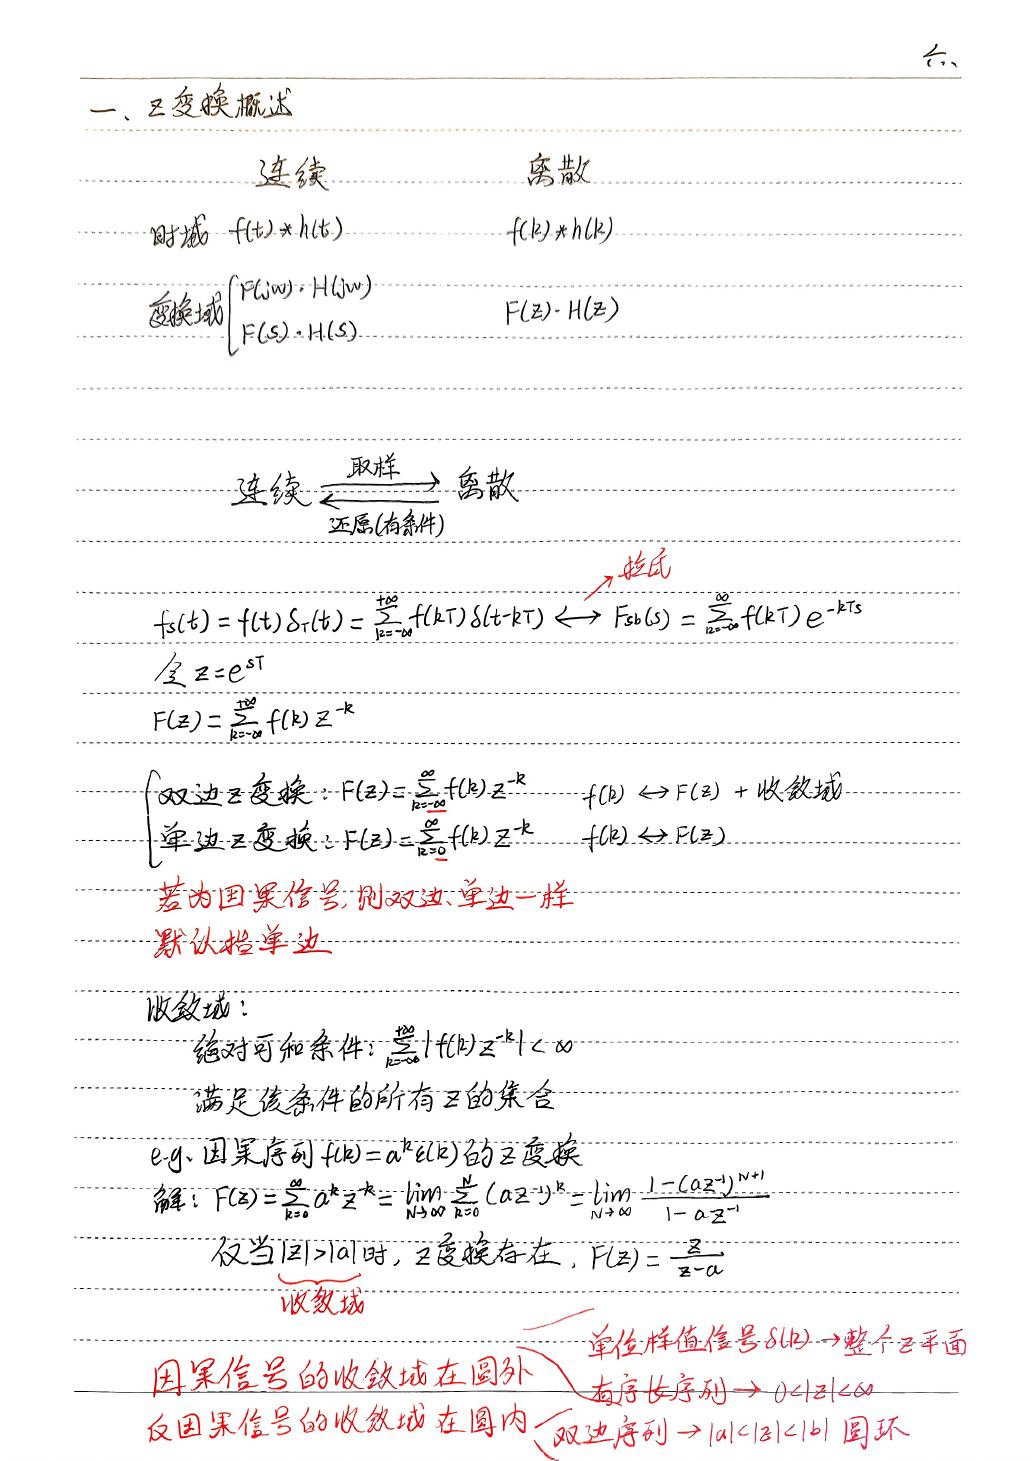 六、
一、Z变换概述
连续 离散
时域 f(t)*h(t) f(k)*h(k)
变换域 { F(jw)·H(jw)
F(s)·H(s) F(z)·H(z)
取样
连续 ⇄ 离散
还原(有条件)
拉氏
fs(t) = f(t) δT(t) = Σ_{k=-∞}^{+∞} f(kT) δ(t-kT) ↔ Fsb(s) = Σ_{k=-∞}^{∞} f(kT) e^{-kTs}
令 z = e^{sT}
F(z) = Σ_{k=-∞}^{+∞} f(k) z^{-k}
双边Z变换: F(z) = Σ_{k=-∞}^{∞} f(k) z^{-k} f(k) ↔ F(z) + 收敛域
单边Z变换: F(z) = Σ_{k=0}^{∞} f(k) z^{-k} f(k) ↔ F(z)
若为因果信号,则双边、单边一样
默认指单边
收敛域:
绝对可和条件: Σ_{k=-∞}^{+∞} |f(k) z^{-k}| < ∞
满足该条件的所有Z的集合
e.g. 因果序列 f(k) = a^k ε(k) 的Z变换
解: F(z) = Σ_{k=0}^{∞} a^k z^{-k} = lim_{N→∞} Σ_{k=0}^{N} (az^{-1})^k = lim_{N→∞} \frac{1-(az^{-1})^{N+1}}{1-az^{-1}}
仅当|z|>|a|时, Z变换存在, F(z) = \frac{z}{z-a}
收敛域
单位样值信号δ(k) → 整个Z平面
因果信号的收敛域在圆外
有序长序列 → 0<|z|<∞
反因果信号的收敛域在圆内
双边序列 → |a|<|z|<|b| 圆环